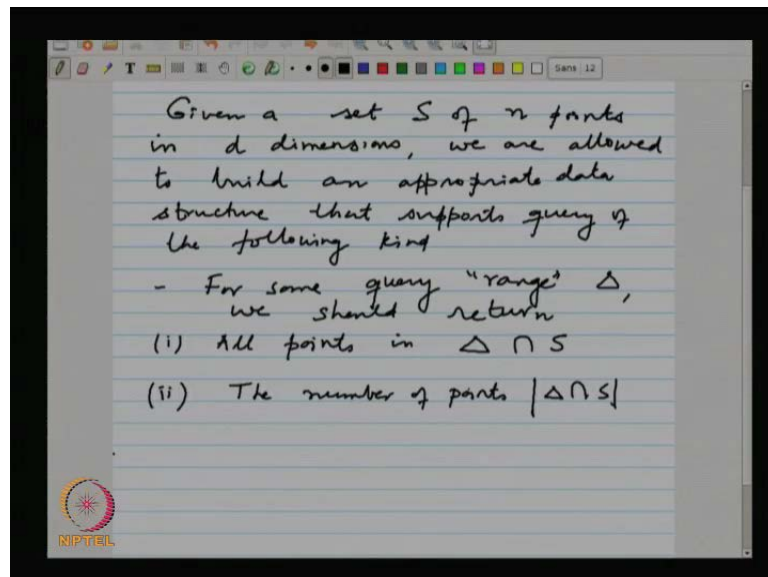 Sans 12
Given a set S of n points
in d dimensions, we are allowed
to build an appropriate data
structure that supports query of
the following kind
- For some query "range" Δ,
we should return
(i) All points in Δ ∩ S
(ii) The number of points |Δ ∩ S|
NPTEL